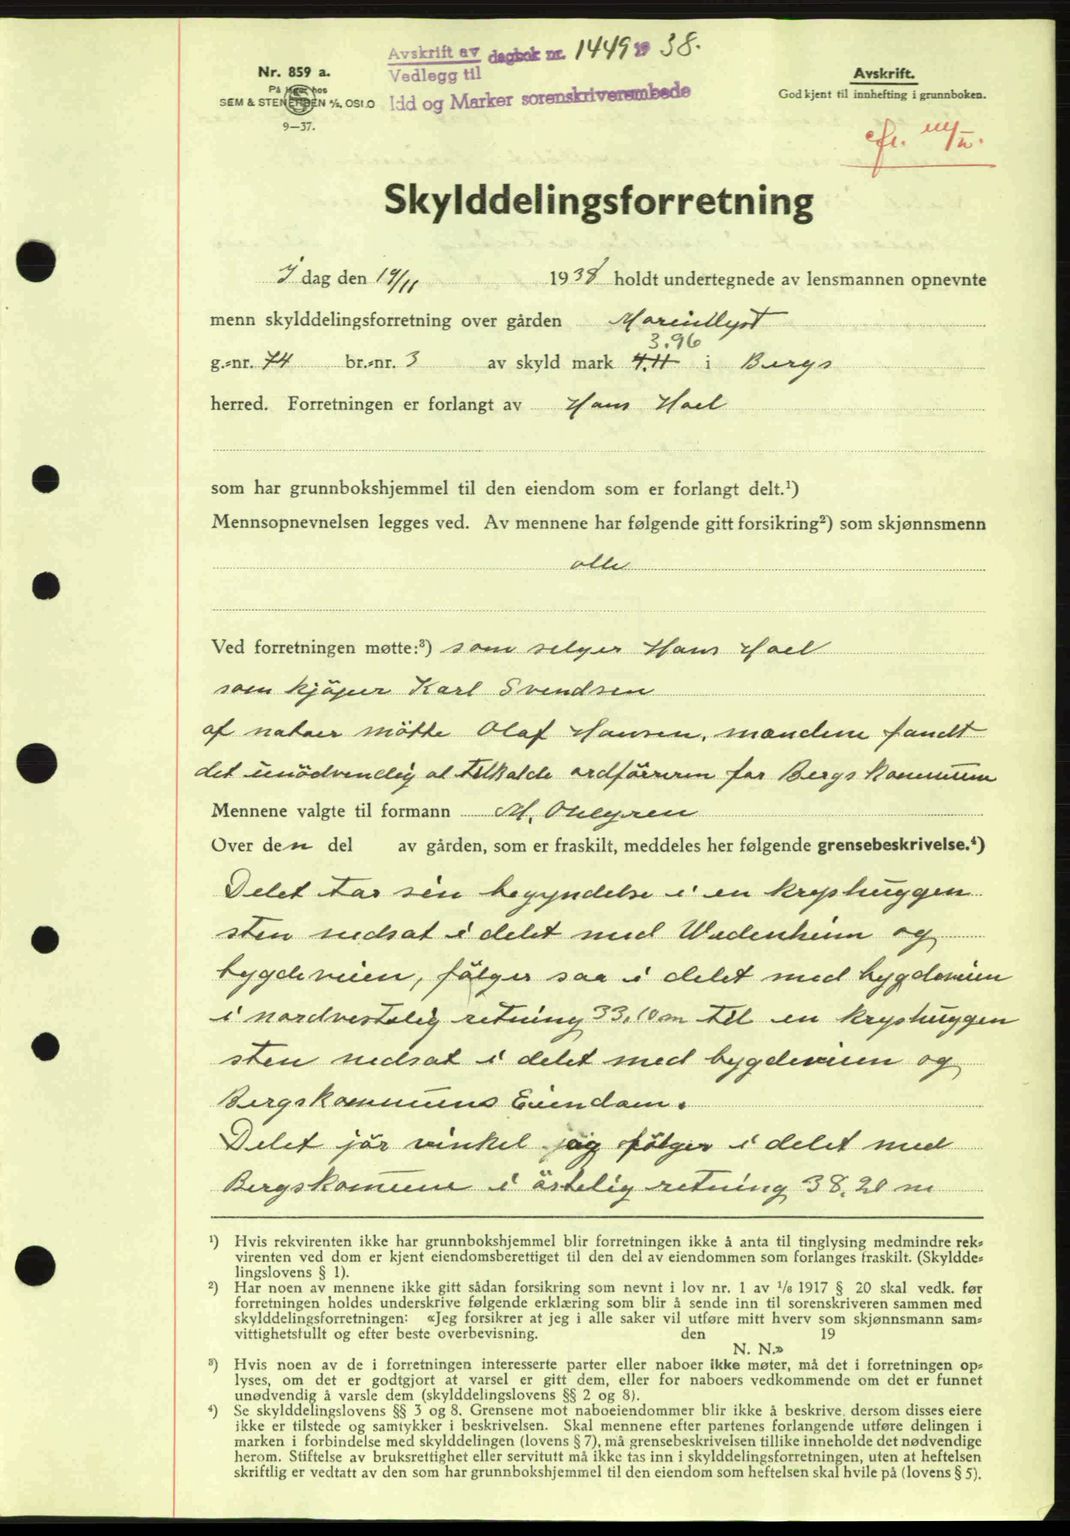 Avskrift av dagbok nr. 1449 1938.
Vedlegg til
Idd og Marker sorenskriverembede
Nr. 859 a.
På lager hos
SEM & STENERSEN A/S, OSLO
9—37.
Avskrift.
Godkjent til innhefting i grunnboken.
Skylddelingsforretning
I dag den 19/11 1938 holdt undertegnede av lensmannen opnevnte
menn skylddelingsforretning over gården Marienlyst
3.96
g.-nr. 74 br.-nr. 3 av skyld mark 4.11 i Bergs
herred. Forretningen er forlangt av Hans Hoel
som har grunnbokshjemmel til den eiendom som er forlangt delt.¹)
Mennsopnevnelsen legges ved. Av mennene har følgende gitt forsikring²) som skjønnsmenn
alle
Ved forretningen møtte:³) som selger Hans Hoel
som kjöper Karl Svendsen
af naboer mötte Olaf Hansen, mændene fandt
det unödvendig at tilkalde ordföreren for Bergs kommune
Mennene valgte til formann M. Ohlgren
Over den del av gården, som er fraskilt, meddeles her følgende grensebeskrivelse.⁴)
Delet tar sin begyndelse i en kryshuggen
sten nedsat i delet med Wedenheim og
bygdeveien, fölger saa i delet med bygdeveien
i nordvestelig retning 33,10 m til en kryshuggen
sten nedsat i delet med bygdeveien og
Bergskommuns Eiendom.
Delet jör vinkel og fölger i delet med
Bergskomune i östelig retning 38,20 m
¹) Hvis rekvirenten ikke har grunnbokshjemmel blir forretningen ikke å anta til tinglysing medmindre rek-
virenten ved dom er kjent eiendomsberettiget til den del av eiendommen som forlanges fraskilt. (Skyldde-
lingslovens § 1).
²) Har noen av mennene ikke gitt sådan forsikring som nevnt i lov nr. 1 av ¹/₈ 1917 § 20 skal vedk. før
forretningen holdes underskrive følgende erklæring som blir å sende inn til sorenskriveren sammen med
skylddelingsforretningen: «Jeg forsikrer at jeg i alle saker vil utføre mitt hverv som skjønnsmann sam-
vittighetsfullt og efter beste overbevisning. den 19
N. N.»
³) Hvis noen av de i forretningen interesserte parter eller naboer ikke møter, må det i forretningen op-
lyses, om det er godtgjort at varsel er gitt dem, eller for naboers vedkommende om det er funnet
unødvendig å varsle dem (skylddelingslovens §§ 2 og 8).
⁴) Se skylddelingslovens §§ 3 og 8. Grensene mot naboeiendommer blir ikke å beskrive, dersom disses eiere
ikke er tilstede og samtykker i beskrivelsen. Skal mennene efter partenes forlangende utføre delingen i
marken i forbindelse med skylddelingen (lovens § 7), må grensebeskrivelsen tillike inneholde det nødvendige
herom. Stiftelse av bruksrettighet eller servitutt må ikke tas inn i skylddelingsforretningen, uten at heftelsen
skriftlig er vedtatt av den som har grunnbokshjemmel til den eiendom som heftelsen skal hvile på (lovens § 5).